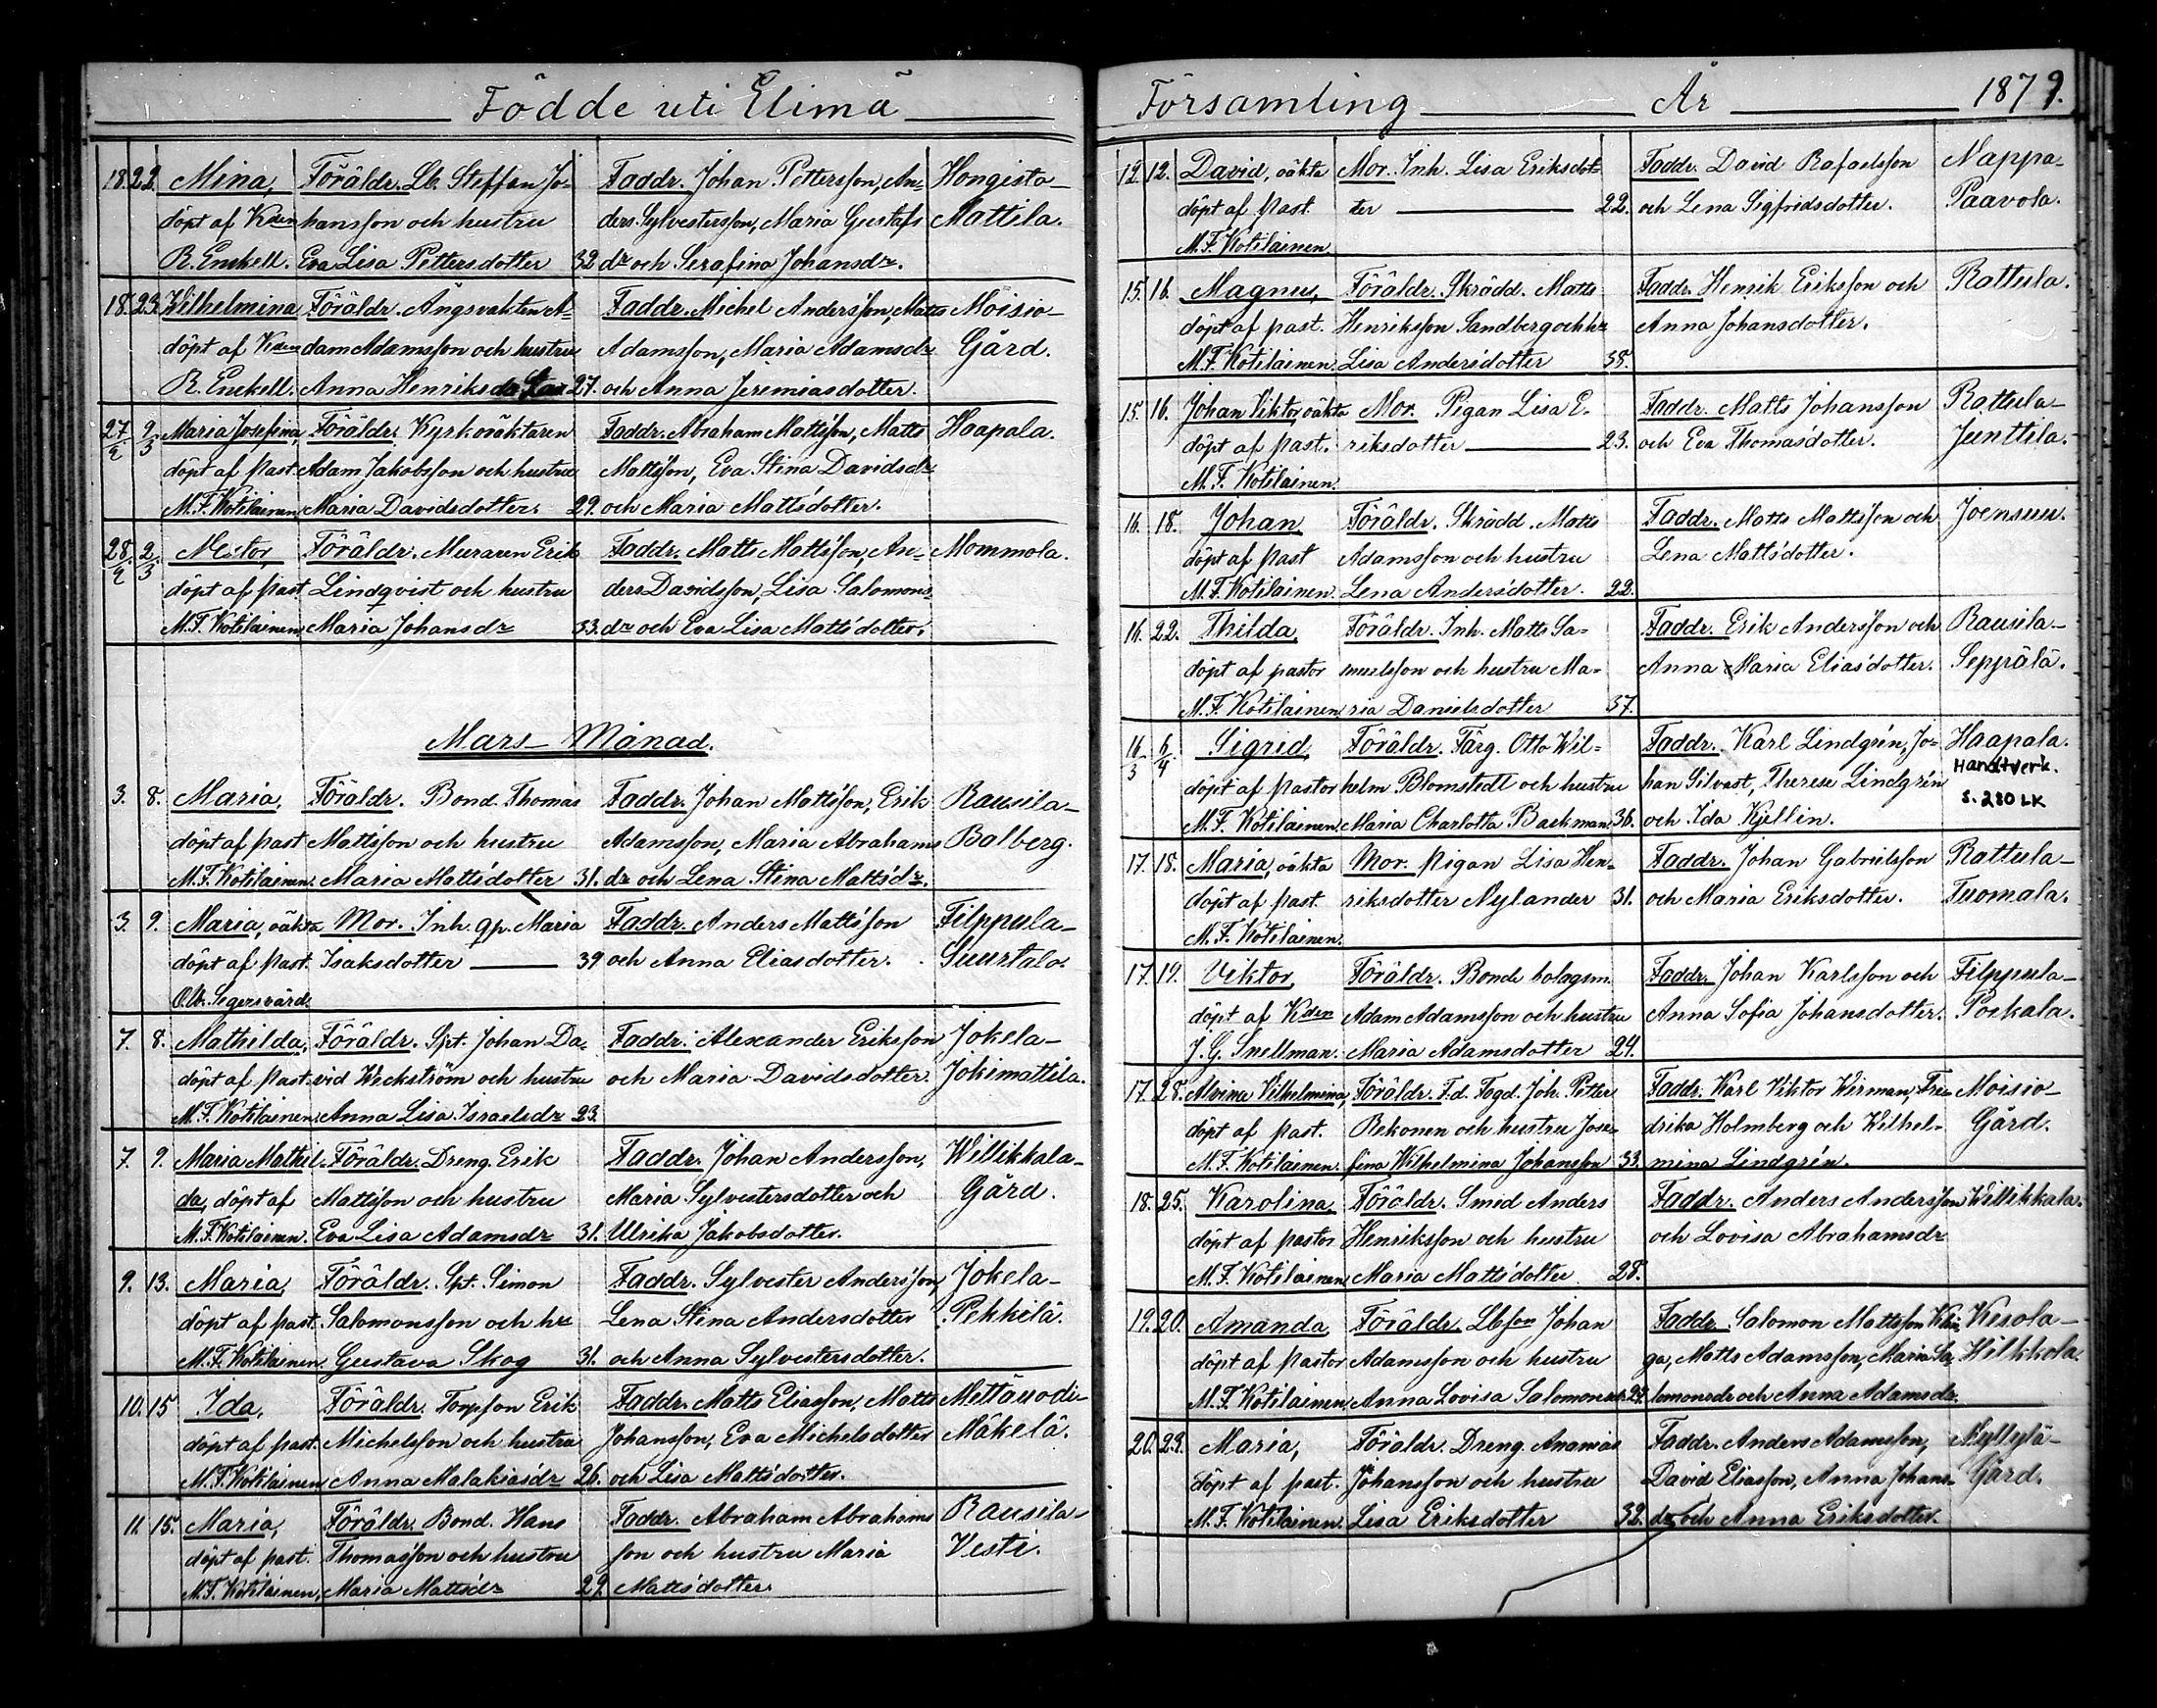 Födde uti Elimä
18. 22. Mina, Föräldr. Lb. Steffan Jo- Faddr. Johan Pettersson, An- Hongisto-
döpt af Kden hansson och hustru ders Sylvestersson, Maria Gustafs Mattila.
R. Enckell. Eva Lisa Pettersdotter 32 dr och Serafina Johansdr.
18. 23. Wilhelmina Föräldr. Ängsvakten A- Faddr. Michel Andersson, Matts Moisio-
döpt af Kden dam Adamsson och hustru Adamsson, Maria Adamsdr Gård.
R. Enckell. Anna Henriks 27. och Anna Jeremiasdotter.
27/2 2/3 Maria Josefina Föräldr. Kyrkoväktaren Faddr. Abraham Mattsson, Matts Haapala.
döpt af past. Adam Jakobsson och hustru Mattsson, Eva Stina Davidsdr
M.F. Kotilainen. Maria Davidsdotter. 29. och Maria Mattsdotter.
28/2 2/3 Nestor, Föräldr. Muraren Erik Faddr. Matts Mattsson, An- Mommola.
döpt af past Lindqvist och hustru ders Davidsson, Lisa Salomons
M.F. Kotilainen. Maria Johansdr 33. dr och Eva Lisa Mattsdotter.
Mars- Månad.
3. 8. Maria, Föräldr. Bond. Thomas Faddr. Johan Mattsson, Erik Rausila-
döpt af past Mattsson och hustru Adamsson, Maria Abrahams Bolberg.
M.F. Kotilainen. Maria Mattsdotter 31. dr och Lena Stina Mattsdr.
3. 9. Maria, oäkta Mor. Inh. qp. Maria Faddr. Anders Mattsson Filppula-
döpt af past. Isaksdotter 39 och Anna Eliasdotter. Suurtalo.
Segersvärd.
7. 8. Mathilda, Föräldr. Spt. Johan Da- Faddr. Alexander Eriksson Jokela-
döpt af past. vid Weckström och hustru och Maria Davidsdotter. Jokimattila.
M.F. Kotilainen. Anna Lisa Israelsdr 23.
7. 9. Maria Mathil- Föräldr. Dreng. Erik Faddr. Johan Andersson, Willikkala-
da, döpt af Mattsson och hustru Maria Sylvestersdotter och Gård.
M.F. Kotilainen. Eva Lisa Adamsdr 31. Ulrika Jakobsdotter.
9. 13. Maria, Föräldr. Spt. Simon Faddr. Sylvester Andersson, Jokela-
döpt af past. Salomonsson och hr Lena Stina Andersdotter Pekkilä.
M.F. Kotilainen. Gustava Skog 31. och Anna Sylvestersdotter.
10. 15 Ida, Föräldr. Torpson Erik Faddr. Matts Eliasson, Matts Mettäuodi-
döpt af past. Michelsson och hustru Johansson, Eva Michelsdotter Mäkelä.
M.F. Kotilainen Anna Malakiasdr 26. och Lisa Mattsdotter.
11. 15. Maria, Föräldr. Bond. Hans Faddr. Abraham Abrahams Rausila-
döpt af past. Thomasson och hustru son och hustru Maria Vesti.
M.F. Kotilainen. Maria Mattsdr 29. Mattsdotter.
Församling År 1879.
12. 12. David, oäkta Mor. Inh. Lisa Eriksdot- Faddr. David Rafaelsson Nappa-
döpt af past. ter 22. och Lena Sigfridsdotter. Paavola.
M.F. Kotilainen
15. 16. Magnus, Föräldr. Skrädd. Matts Faddr. Henrik Eriksson och Rattula.
döpt af past. Henriksson Sandberg och hr Anna Johansdotter.
M.F. Kotilainen. Lisa Andersdotter 38.
15. 16. Johan Viktor, oäkta Mor. Pigan Lisa E- Faddr. Matts Johansson Rattula-
döpt af past. riksdotter 23. och Eva Thomasdotter. Junttila.
M.F. Kotilainen.
16. 18. Johan, Föräldr. Skrädd. Matts Faddr. Matts Mattsson och Joensuu.
döpt af past Adamsson och hustru Lena Mattsdotter.
M.F. Kotilainen. Lena Andersdotter. 22.
16. 22. Thilda, Föräldr. Inh. Matts Sa- Faddr. Erik Andersson och Rausila-
döpt af pastor muelsson och hustru Ma- Anna Maria Eliasdotter. Seppälä.
M.F. Kotilainen. ria Danielsdotter 37.
16/3 6/4 Sigrid, Föräldr. Färg. Otto Wil- Faddr. Karl Lindgrén, Jo- Haapala.
Handtverk.
döpt af pastor helm Blomstedt och hustru han Silvast, Therese Lindgrén S. 280 LK
M.F. Kotilainen. Maria Charlotta Backman 36. och Ida Kjellin.
17. 18. Maria, oäkta Mor. Pigan Lisa Hen- Faddr. Johan Gabrielsson Rattula-
döpt af past. riksdotter Nylander 31. och Maria Eriksdotter. Tuomala.
M.F. Kotilainen.
17. 19. Viktor, Föräldr. Bonde bolagsm. Faddr. Johan Karlsson och Filppula-
döpt af Kden Adam Adamsson och hustru Anna Sofia Johansdotter. Pockala.
J.G. Snellman. Maria Adamsdotter 24.
17. 28. Alvina Vilhelmina, Föräldr. F.d. Fogd. Joh. Petter Faddr. Karl Viktor Wirman, Fre- Moisio-
döpt af past. Rekonen och hustru Jose- drika Holmberg och Wilhel- Gård.
M.F. Kotilainen. fina Wilhelmina Johansson 33. mina Lindgrén.
18. 25. Karolina, Föräldr. Smed Anders Faddr. Anders Andersson Willikkala.
döpt af pastor Henriksson och hustru och Lovisa Abrahamsdr
M.F. Kotilainen. Maria Mattsdotter 28.
19. 20. Amanda, Föräldr. Lbson Johan Faddr. Salomon Mattsson Kesola-
döpt af pastor Adamsson och hustru ga, Matts Adamsson, Maria Sa- Hilkkola.
M.F. Kotilainen. Anna Lovisa Salomonsdr. 24. lomonsdr och Anna Adamsdr.
20. 23. Maria, Föräldr. Dreng. Ananias Faddr. Anders Adamsson, Nyllylä-
döpt af past. Johansson och hustru David Eliasson, Anna Johans- Gård.
M.F. Kotilainen. Lisa Eriksdotter 32. dr och Anna Eriksdotter.